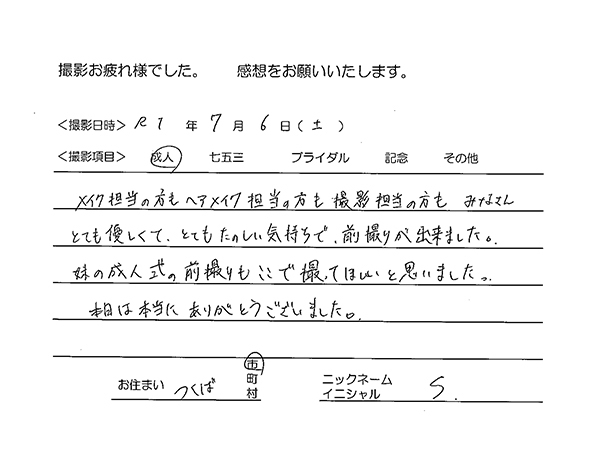 撮影お疲れ様でした。　感想をお願いいたします。
<撮影日時> R1 年 7 月 6 日 ( 土 )
<撮影項目> 成人 七五三 ブライダル 記念 その他
メイク担当の方も ヘアメイク担当の方も 撮影担当の方も みなさん
とても優しくて、とてもたのしい気持ちで、前撮りが出来ました。
妹の成人式の前撮りもここで撮ってほしいと思いました。
本日は本当に ありがとうございました。
お住まい つくば 市 町 村
ニックネーム イニシャル S.